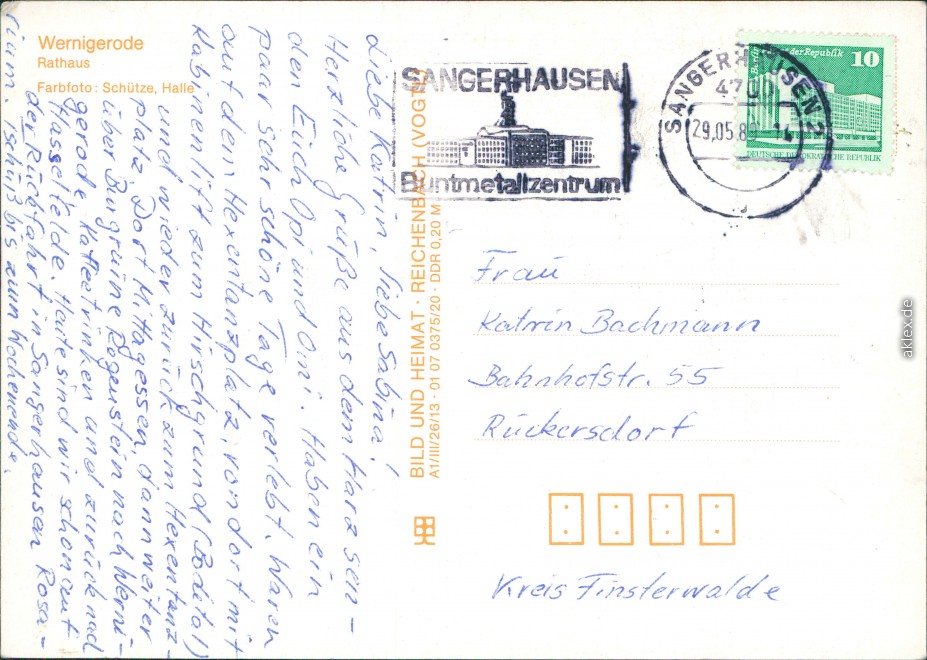 Wernigerode
Rathaus
Farbfoto: Schütze, Halle
Liebe Katrin, liebe Sabina!
Herzliche Grüße aus dem Harz sen-
den Euch Opi und Omi. Haben ein
paar sehr schöne Tage verlebt. Waren
auf dem Hexentanzplatz, von dort mit
Kabinenlift zum Hirschgrund (Bodetal)
und wieder zurück zum Hexentanz-
platz. Dort Mittagessen, dann weiter
über Burgruine Regenstein nach Werni-
gerode, Kaffeetrinken und zurück nach
Hasselfelde. Heute sind wir schon auf
der Rückfahrt in Sangerhausen Rosa-
rium. Tschüß bis zum Wochenende.
BILD UND HEIMAT · REICHENBACH (VOGTL)
A1/III/26/13 · 01 07 0375/20 · DDR 0,20 M
SANGERHAUSEN
Buntmetallzentrum
SANGERHAUSEN 2
4700
29.05.8
14
Berlin
der Republik
10
DEUTSCHE DEMOKRATISCHE REPUBLIK
Frau
Katrin Bachmann
Bahnhofstr. 55
Rückersdorf
Kreis Finsterwalde
aklex.de